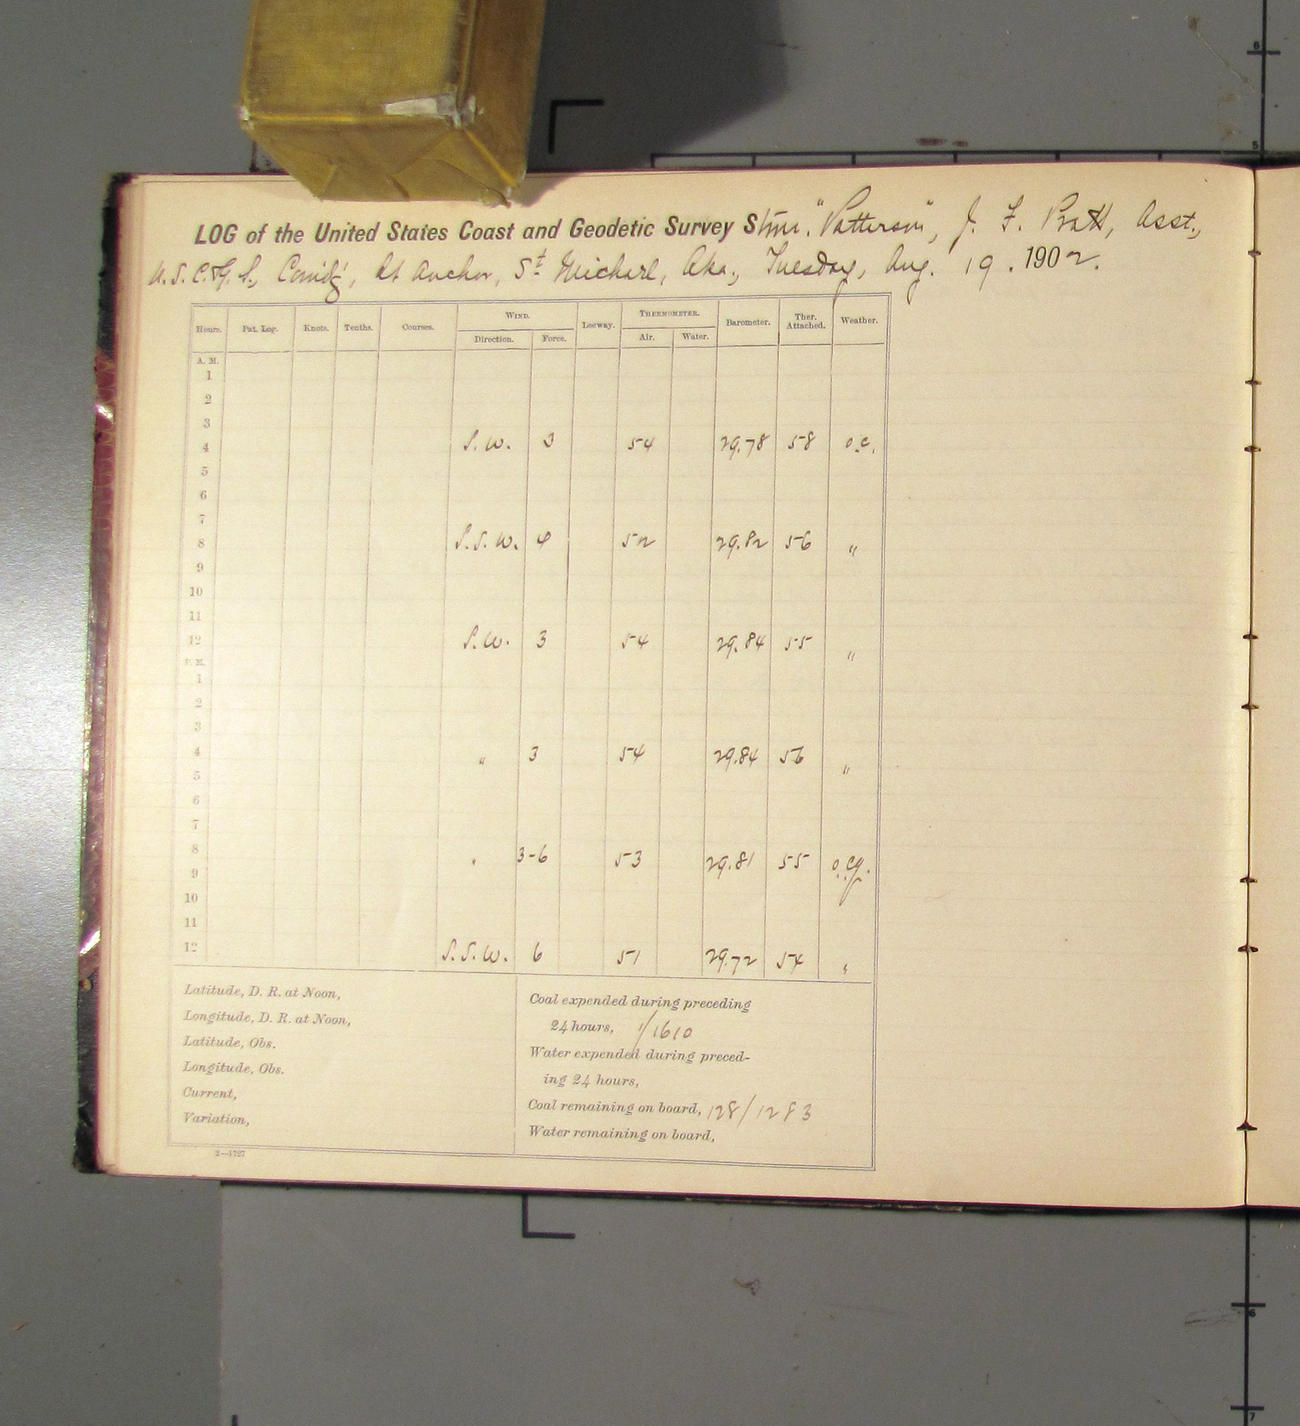 LOG of the United States Coast and Geodetic Survey Stmr. "Patterson", J. F. Pratt, Asst.,
U.S.C.&G.S., Comd'g, At Anchor, St Michael, Aka., Tuesday, Aug. 19. 1902.
Hours. Pat. Log. Knots. Tenths. Courses. WIND. Leeway. THERMOMETER. Barometer. Ther. Attached. Weather.
Direction. Force. Air. Water.
A. M.
1
2
3
4 S.W. 3 54 29.78 58 o.c.
5
6
7
8 S.S.W. 4 52 29.82 56 "
9
10
11
12 S.W. 3 54 29.84 55 "
P. M.
1
2
3
4 " 3 54 29.84 56 "
5
6
7
8 " 3-6 53 29.81 55 o.c.g.
9
10
11
12 S.S.W. 6 51 29.72 54 "
Latitude, D. R. at Noon,
Longitude, D. R. at Noon,
Latitude, Obs.
Longitude, Obs.
Current,
Variation,
Coal expended during preceding
24 hours, 1/1610
Water expended during preced-
ing 24 hours,
Coal remaining on board, 128/1283
Water remaining on board,
2—1727
6
5
6
7